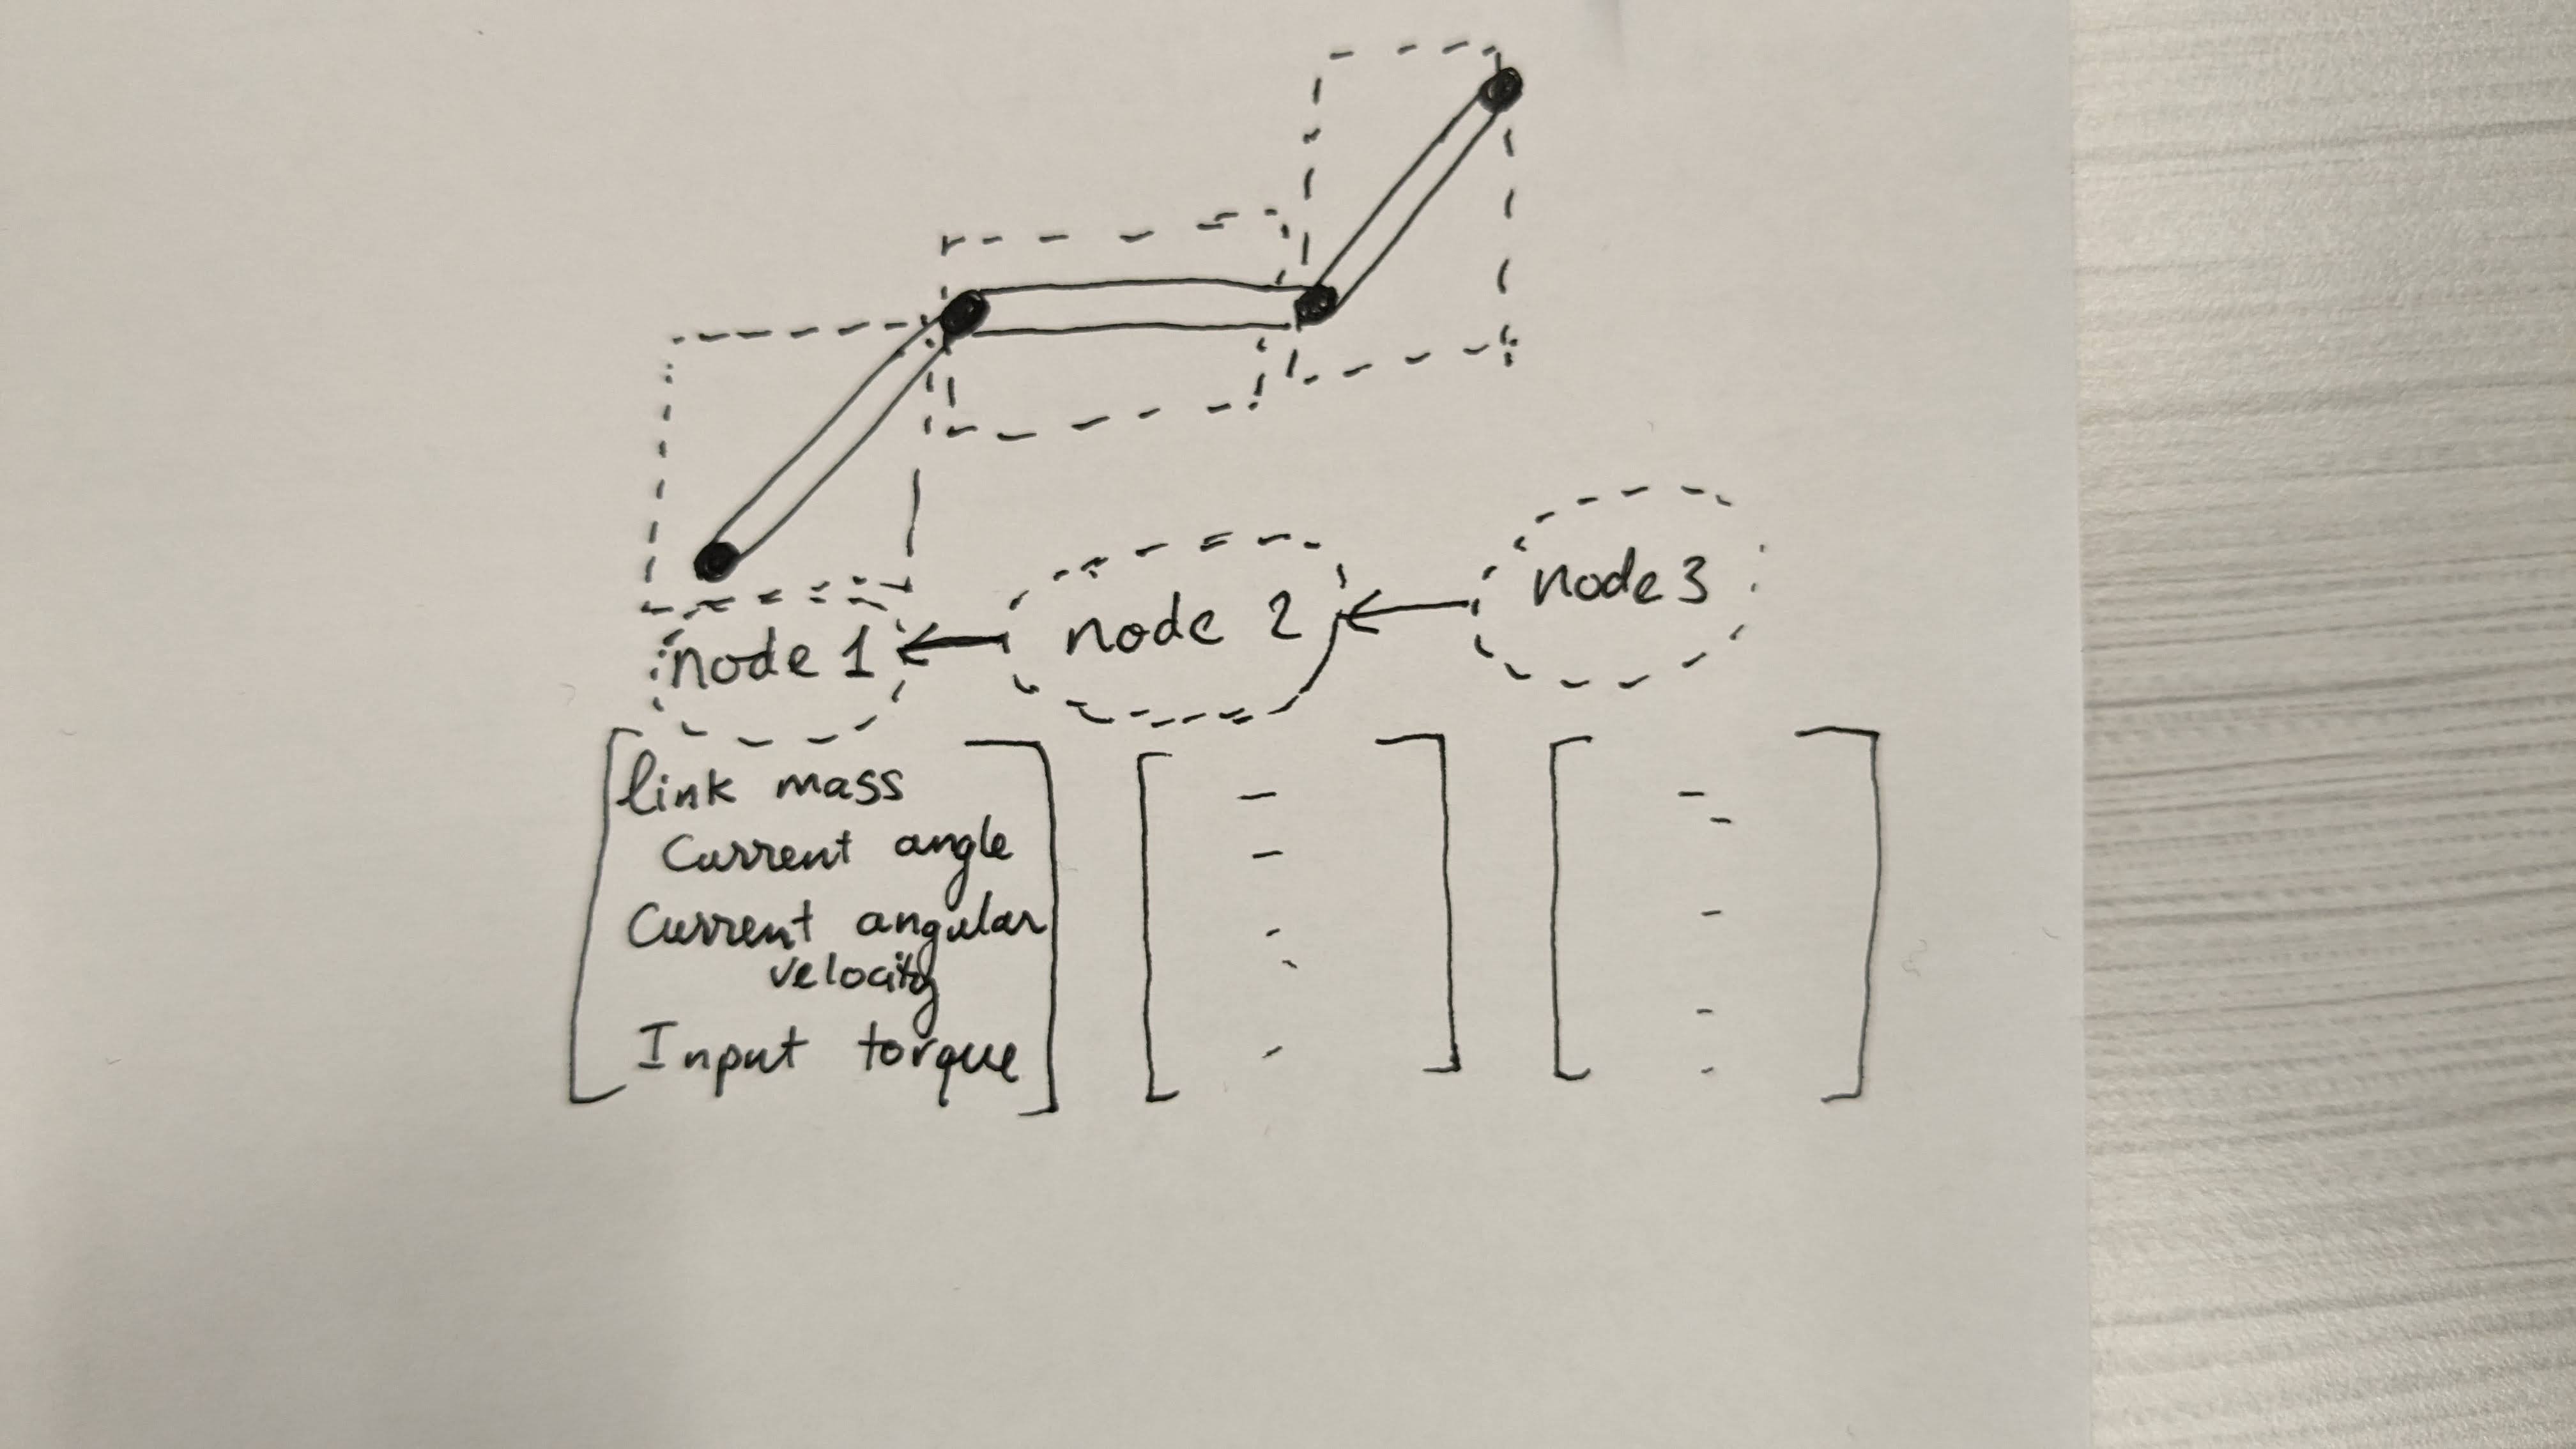 node 1
node 2
node 3
link mass
Current angle
Current angular
velocity
Input torque